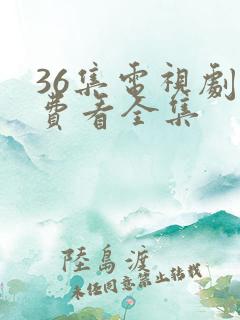 36集電視劇
費看全集
陸島渡
未經同意禁止轉載